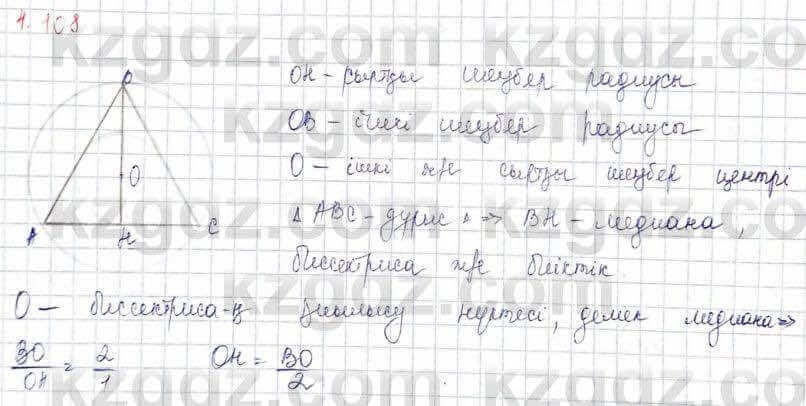 4.108
B
O
A H C
OH - сыртқы шеңбер радиусы
OB - ішкі шеңбер радиусы
O - ішкі және сыртқы шеңбер центрі
△ ABC - дұрыс △ => BH - медиана,
биссектриса және биіктік
O - биссектриса-ң қиылысу нүктесі, демек медиана =>
BO/OH = 2/1 OH = BO/2
kzgdz.com